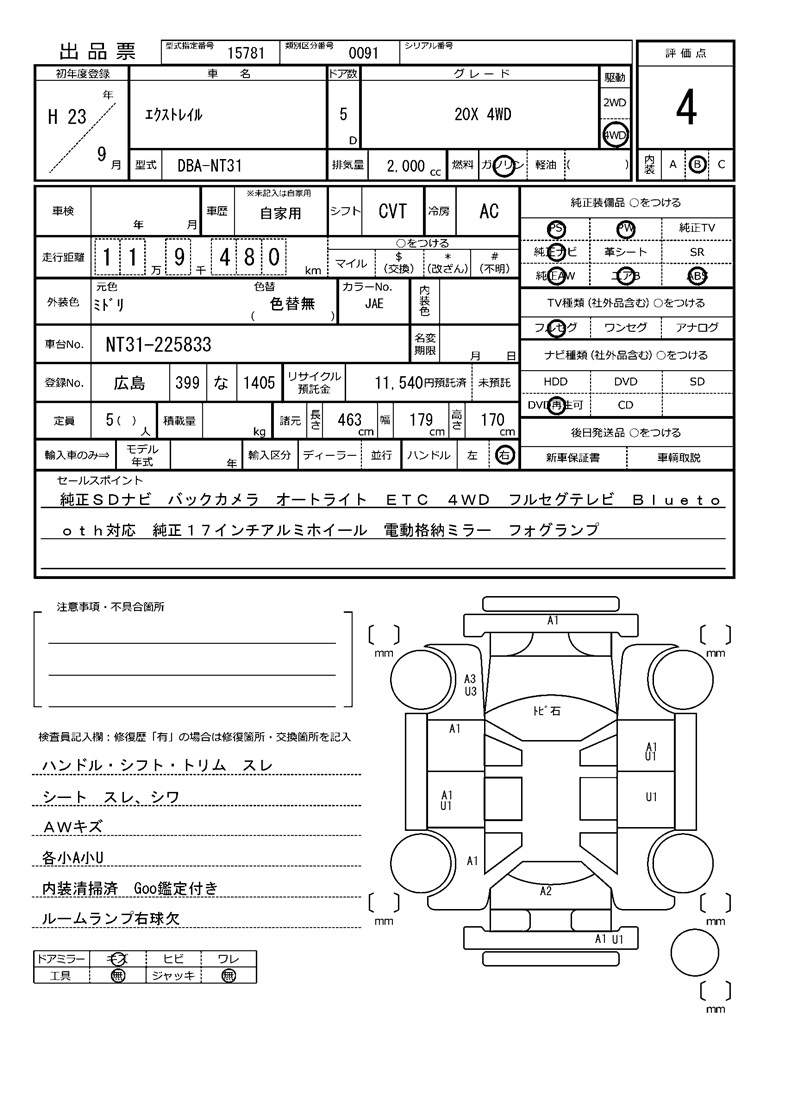 出品票 型式指定番号 15781 類別区分番号 0091 シリアル番号
初年度登録 車名 ドア数 グレード 駆動 評価点
H 23 年 9 月 エクストレイル 5 D 20X 4WD 2WD 4WD 4
型式 DBA-NT31 排気量 2,000 cc 燃料 ガソリン 軽油 ( ) 内装 A B C
車検 年 月 車歴 ※未記入は自家用 自家用 シフト CVT 冷房 AC
走行距離 11万9千480 km ○をつける マイル $ (交換) * (改ざん) # (不明)
外装色 元色 ミドリ 色替 色替無 ( ) カラーNo. JAE 内装色
車台No. NT31-225833 名変期限 月 日
登録No. 広島 399 な 1405 リサイクル預託金 11,540円預託済 未預託
定員 5 ( ) 人 積載量 kg 諸元 長さ 463 cm 幅 179 cm 高さ 170 cm
輸入車のみ⇒ モデル年式 年 輸入区分 ディーラー 並行 ハンドル 左 右
純正装備品 ○をつける
PS PW 純正TV
純正ナビ 革シート SR
純正AW エアB ABS
TV種類(社外品含む)○をつける
フルセグ ワンセグ アナログ
ナビ種類(社外品含む)○をつける
HDD DVD SD
DVD再生可 CD
後日発送品 ○をつける
新車保証書 車輌取説
セールスポイント
純正SDナビ バックカメラ オートライト ETC 4WD フルセグテレビ Blueto
oth対応 純正17インチアルミホイール 電動格納ミラー フォグランプ
注意事項・不具合箇所
検査員記入欄：修復歴「有」の場合は修復箇所・交換箇所を記入
ハンドル・シフト・トリム スレ
シート スレ、シワ
AWキズ
各小A小U
内装清掃済 Goo鑑定付き
ルームランプ右球欠
ドアミラー キズ ヒビ ワレ
工具 無 ジャッキ 無
A1
mm mm
A3
U3
トビ石
A1
A1
U1
A1
U1
U1
A1
A2
mm mm
A1 U1
mm